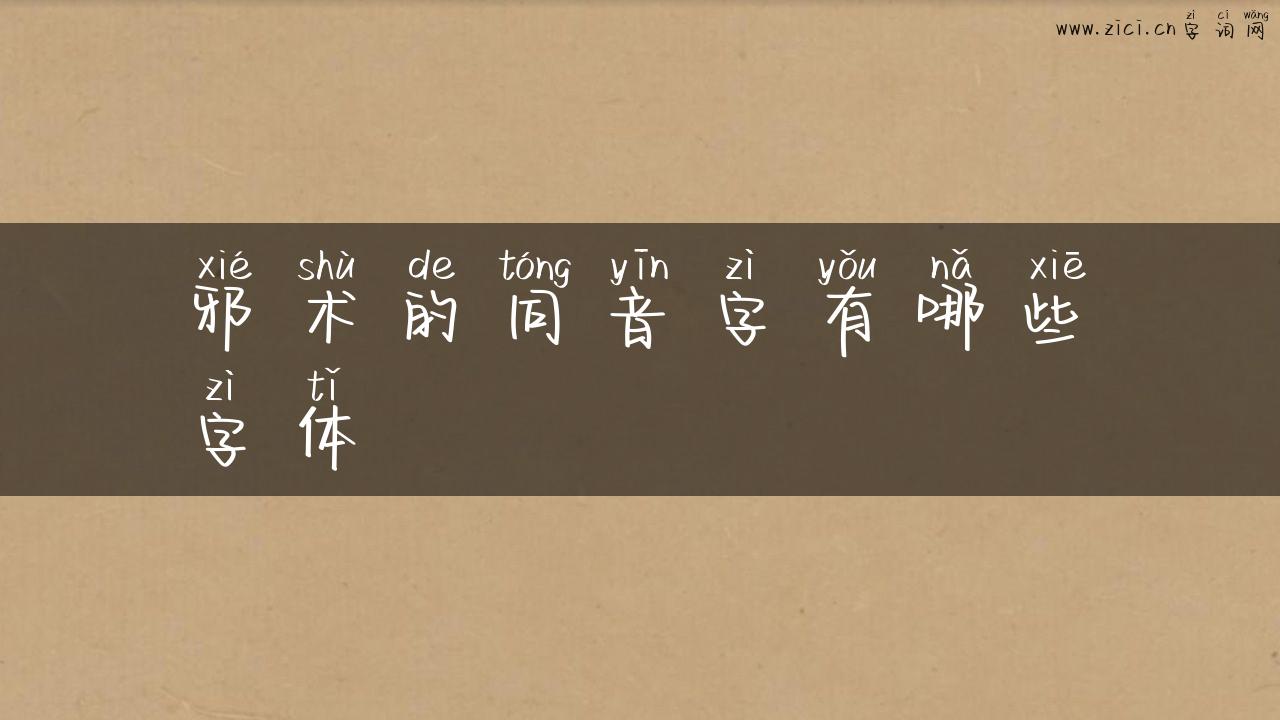 zì cí wǎng
www.zici.cn 字 词 网
xié shù de tóng yīn zì yǒu nǎ xiē
邪 术 的 同 音 字 有 哪 些
zì tǐ
字 体